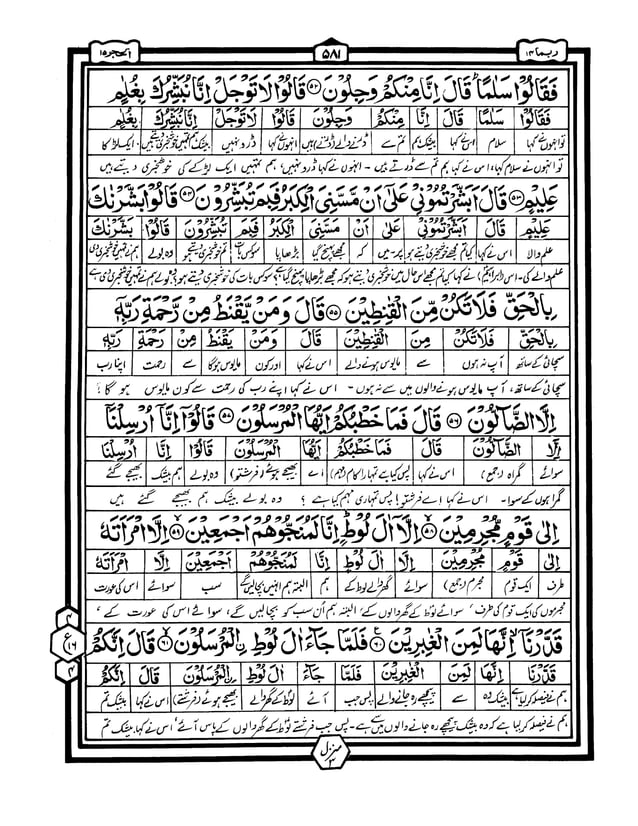 ربما ۱۴
۵۸۱
الحجر ۱۵
فَقَالُوْا سَلٰمًا ؕ قَالَ اِنَّا مِنْكُمْ وَجِلُوْنَ ۵۲ قَالُوْا لَا تَوْجَلْ اِنَّا نُبَشِّرُكَ بِغُلٰمٍ
فَقَالُوْا سَلٰمًا قَالَ اِنَّا مِنْكُمْ وَجِلُوْنَ قَالُوْا لَا تَوْجَلْ اِنَّا نُبَشِّرُكَ بِغُلٰمٍ
تو انہوں نے کہا سلام اس نے کہا بیشک ہم تم سے ڈرنے والے (ڈرتے ہیں) انہوں نے کہا ڈرو نہیں بیشک ہم تمہیں خوشخبری دیتے ہیں ایک لڑکا کا
تو انہوں نے سلام کہا، اس نے کہا ہم تم سے ڈرتے ہیں۔ انہوں نے کہا ڈرو نہیں، ہم تمہیں ایک لڑکے کی خوشخبری دیتے ہیں
عَلِيْمٍ ۵۳ قَالَ اَبَشَّرْتُمُوْنِيْ عَلٰى اَنْ مَّسَّنِيَ الْكِبَرُ فَبِمَ تُبَشِّرُوْنَ ۵۴ قَالُوْا بَشَّرْنٰكَ
عَلِيْمٍ قَالَ اَبَشَّرْتُمُوْنِيْ عَلٰى اَنْ مَّسَّنِيَ الْكِبَرُ فَبِمَ تُبَشِّرُوْنَ قَالُوْا بَشَّرْنٰكَ
علم والا اس نے کہا کیا تم مجھے خوشخبری دیتے ہو پر۔میں کہ مجھے پہنچ گیا بڑھاپا سو کس بات تم خوشخبری دیتے ہو وہ بولے ہم نے تمہیں خوشخبری دی
علم والے کی۔ اس (ابراہیمؑ) نے کہا کیا تم مجھے اس حال میں خوشخبری دیتے ہو کہ مجھے بڑھاپا پہنچ گیا ہے؟ سو کس بات کی خوشخبری دیتے ہو؟ وہ بولے ہم نے تمہیں خوشخبری دی ہے
بِالْحَقِّ فَلَا تَكُنْ مِّنَ الْقٰنِطِيْنَ ۵۵ قَالَ وَمَنْ يَّقْنَطُ مِنْ رَّحْمَةِ رَبِّهٖۤ
بِالْحَقِّ فَلَا تَكُنْ مِنَ الْقٰنِطِيْنَ قَالَ وَمَنْ يَقْنَطُ مِنْ رَحْمَةِ رَبِّهٖ
سچائی کے ساتھ آپ نہ ہوں سے مایوس ہونے والے اس نے کہا اور کون مایوس ہوگا سے رحمت اپنا رب
سچائی کے ساتھ، آپ مایوس ہونے والوں میں سے نہ ہوں۔ اس نے کہا اپنے رب کی رحمت سے کون مایوس ہوگا!
اِلَّا الضَّآلُّوْنَ ۵۶ قَالَ فَمَا خَطْبُكُمْ اَيُّهَا الْمُرْسَلُوْنَ ۵۷ قَالُوْۤا اِنَّاۤ اُرْسِلْنَاۤ
اِلَّا الضَّآلُّوْنَ قَالَ فَمَا خَطْبُكُمْ اَيُّهَا الْمُرْسَلُوْنَ قَالُوْا اِنَّا اُرْسِلْنَا
سوائے گمراہ (جمع) اس نے کہا پس کیا ہے تمہارا کام (مہم) اے بھیجے ہوئے (فرشتو) وہ بولے ہم بیشک بھیجے گئے
گمراہوں کے سوا۔ اس نے کہا اے فرشتو! پس تمہاری مہم کیا ہے؟ وہ بولے بیشک ہم بھیجے گئے ہیں
اِلٰى قَوْمٍ مُّجْرِمِيْنَ ۵۸ اِلَّاۤ اٰلَ لُوْطٍ ؕ اِنَّا لَمُنَجُّوْهُمْ اَجْمَعِيْنَ ۵۹ اِلَّا امْرَاَتَهٗ
اِلٰى قَوْمٍ مُجْرِمِيْنَ اِلَّا اٰلَ لُوْطٍ اِنَّا لَمُنَجُّوْهُمْ اَجْمَعِيْنَ اِلَّا امْرَاَتَهٗ
طرف ایک قوم مجرم (جمع) سوائے گھر والے لوطؑ کے ہم البتہ ہم انہیں بچالیں گے سب سوائے اس کی عورت
مجرموں کی ایک قوم کی طرف، سوائے لوطؑ کے گھر والوں کے، البتہ ہم ان سب کو بچالیں گے، سوائے اس کی عورت کے،
قَدَّرْنَاۤ ۙ اِنَّهَا لَمِنَ الْغٰبِرِيْنَ ۶۰ فَلَمَّا جَآءَ اٰلَ لُوْطِ ۨالْمُرْسَلُوْنَ ۶۱ قَالَ اِنَّكُمْ
قَدَّرْنَا اِنَّهَا لَمِنَ الْغٰبِرِيْنَ فَلَمَّا جَآءَ اٰلَ لُوْطِ ۨالْمُرْسَلُوْنَ قَالَ اِنَّكُمْ
ہم نے فیصلہ کرلیا ہے بیشک وہ سے پیچھے رہ جانے والے پس جب آئے لوطؑ کے گھر والے بھیجے ہوئے (فرشتے) اس نے کہا بیشک تم
ہم نے فیصلہ کرلیا ہے کہ وہ بیشک پیچھے رہ جانے والوں میں سے ہے۔ پس جب فرشتے لوطؑ کے گھر والوں کے پاس آئے، اس نے کہا بیشک تم
ع
۱۶
۴
منزل ۳